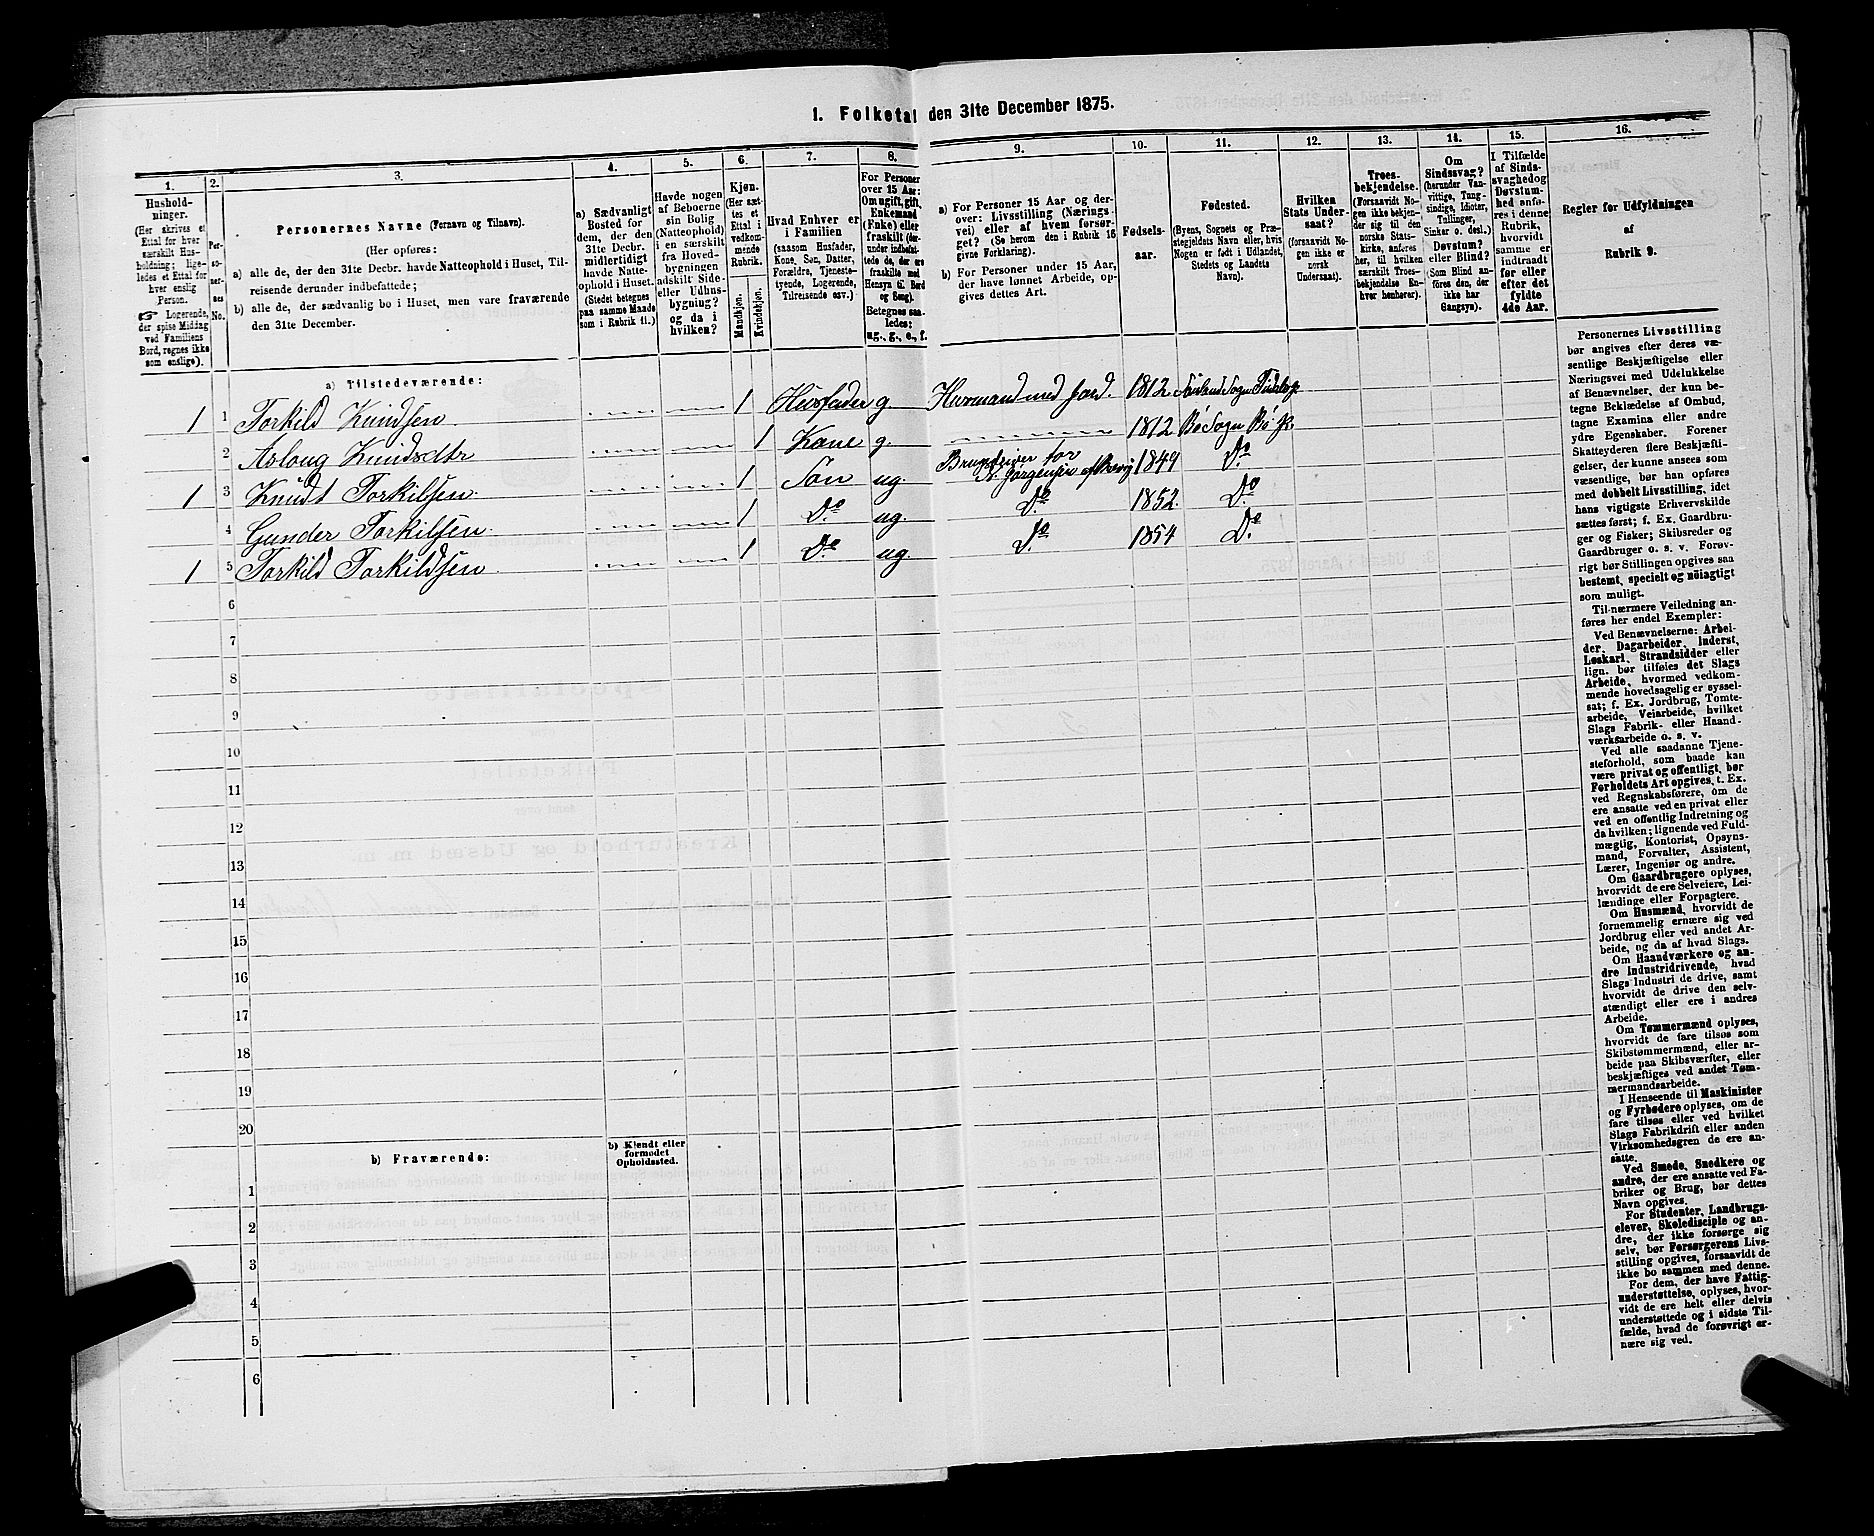 1. Folketal den 31te December 1875.
1.
2.
3.
4.
5.
6.
7.
8.
9.
10.
11.
12.
13.
14.
15.
16.
Hushold-
ninger.
(Her skrives et
Ettal for hver
særskilt Hus-
holdning; lige-
ledes et Ettal for
hver enslig
Person.
☞ Logerende,
der spise Middag
ved Familiens
Bord, regnes ikke
som enslige).
Per-
so-
ner-
nes
No.
Personernes Navne (Fornavn og Tilnavn).
(Her opføres:
a) alle de, der den 31te Decbr. havde Natteophold i Huset, Til-
reisende derunder indbefattede;
b) alle de, der sædvanlig bo i Huset, men vare fraværende
den 31te December.
a) Sædvanligt
Bosted for
dem, der den
31te Decbr.
midlertidigt
havde Natte-
ophold i Huset.
(Stedet betegnes
paa samme Maade
som i Rubrik 11.)
Havde nogen
af Beboerne
sin Bolig
(Natteophold)
i en særskilt
fra Hoved-
bygningen
adskilt Side-
eller Udhus-
bygning?
og da i
hvilken?
Kjøn.
(Her sæt-
tes et
Ettal i
vedkom-
mende
Rubrik.
Mandkjøn.
Kvindekjøn.
Hvad Enhver er
i Familien
(saasom Husfader,
Kone, Søn, Datter,
Forældre, Tjeneste-
tyende, Logerende,
Tilreisende osv.)
For Personer
over 15 Aar:
Om ugift, gift,
Enkemand
(Enke) eller
fraskilt (der-
under indbefat-
tede de, der ere
fraskilte med
Hensyn til Bord
og Seng).
Betegnes saa-
ledes:
ug., g., e., f.
a) For Personer 15 Aar og der-
over: Livsstilling (Nærings-
vei) eller af hvem forsør-
get? (Se herom den i Rubrik 16
givne Forklaring).
b) For Personer under 15 Aar,
der have lønnet Arbeide, op-
gives dettes Art.
Fødsels-
aar.
Fødested.
(Byens, Sognets og Præ-
stegjeldets Navn eller, hvis
Nogen er født i Udlandet,
Stedets og Landets
Navn).
Hvilken
Stats Under-
saat?
(forsaavidt No-
gen ikke er
norsk
Undersaat).
Troes-
bekjendelse.
(Forsaavidt No-
gen ikke bekjen-
der sig til den
norske Stats-
kirke, anføres
her, til hvilken
særskilt Troes-
bekjendelse En-
hver henhører).
Om
Sindssvag?
(herunder Van-
vittige, Tung-
sindige, Idioter,
Tullinger,
Sinker o. desl.)
Døvstum?
eller Blind?
(Som Blind an-
føres den, der
ikke har
Gangsyn).
I Tilfælde
af Sinds-
svaghedog
Døvstum-
hed anfø-
res i denne
Rubrik,
hvorvidt
samme er
indtraadt
før eller
efter det
fyldte
4de Aar.
Regler for Udfyldningen
af
Rubrik 9.
a) Tilstedeværende:
1 1 Torkild Knudsen 1 Husfader g. Husmand med Jord. 1812
2 Aslaug Knudsdtr 1 Kone g. 1812 Bø Sogn Bø
1 3 Knudt Torkilsen 1 Søn ug. 1849 Do
4 Gunder Torkilsen 1 Do ug. Do 1852 Do
1 5 Torkild Torkildsen 1 Do ug. Do 1854 Do
6
7
8
9
10
11
12
13
14
15
16
17
18
19
20
b) Fraværende:
b) Kjendt eller
formodet
Opholdssted.
1
2
3
4
5
6
Personernes Livsstilling
bør angives efter deres væ-
sentlige Beskjæftigelse eller
Næringsvei med Udelukkelse
af Benævnelser, der kun be-
tegne Beklædelse af Ombud,
tagne Examina eller andre
ydre Egenskaber. Forener
Skatteyderen flere Beskjæfti-
gelser, der kunne ansees som
væsentlige, bør han opføres
med dobbelt Livsstilling, idet
hans vigtigste Erhvervskilde
sættes først; f. Ex. Gaardbru-
ger og Fisker; Skibsreder og
Gaardbruger o. s. v. Forøv-
rigt bør Stillingen opgives saa
bestemt, specielt og nöiagtigt
som muligt.
Til nærmere Veiledning an-
føres her endel Exempler:
Ved Benævnelserne: Arbei-
der, Dagarbeider, Inderst,
Løskarl, Strandsidder eller
lign. bør tilføies det Slags
Arbeide, hvormed vedkom-
mende hovedsagelig er syssel-
sat; f. Ex. Jordbrug, Tomte-
arbeide, Veiarbeide, hvilket
Slags Fabrik- eller Haand-
værksarbeide o. s. v.
Ved alle saadanne Tjene-
steforhold, som baade kan
være privat og offentligt, bør
Forholdets Art opgives, t. Ex.
ved Regnskabsførere, om de
ere ansatte ved en privat eller
ved en offentlig Indretning og
da hvilken; lignende ved Fuld-
mægtig, Kontorist, Opsyns-
mand, Forvalter, Assistent,
Lærer, Ingeniør og andre.
Om Gaardbrugere oplyses,
hvorvidt de ere Selveiere, Lei-
lændinge eller Forpagtere.
Om Husmænd, hvorvidt de
fornemmelig ernære sig ved
Jordbrug eller ved andet Ar-
beide, og da af hvad Slags.
Om Haandværkere og an-
dre Industridrivende, hvad
Slags Industri de drive, samt
hvorvidt de drive den selv-
stændigt eller ere i andres
Arbeide.
Om Tømmermænd oplyses,
hvorvidt de fare tilsøs som
Skibstømmermænd, eller ar-
beide paa Skibsværfter, eller
beskjæftiges ved andet Tøm-
mermandsarbeide.
I Henseende til Maskinister
og Fyrbødere oplyses, om de
fare tilsøs eller ved hvilket
Slags Fabrikdrift eller anden
Virksomhedsgren de ere an-
satte.
Ved Smede, Snedkere og
andre, der ere ansatte ved Fa-
briker og Brug, bør dettes
Navn opgives.
For Studenter, Landbrugs-
elever, Skoledisciple og an-
dre, der ikke forsørge sig
selv, bør Forsørgerens Livs-
stilling opgives, forsaavidt de
ikke bo sammen med denne.
For dem, der have Fattig-
understøttelse, oplyses, hvor-
vidt de ere helt eller delvis
understøttede og i sidste Til-
fælde, hvad de forøvrigt er-
nære sig ved.